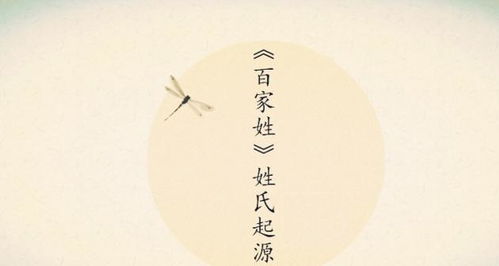 《百家姓》姓氏起源